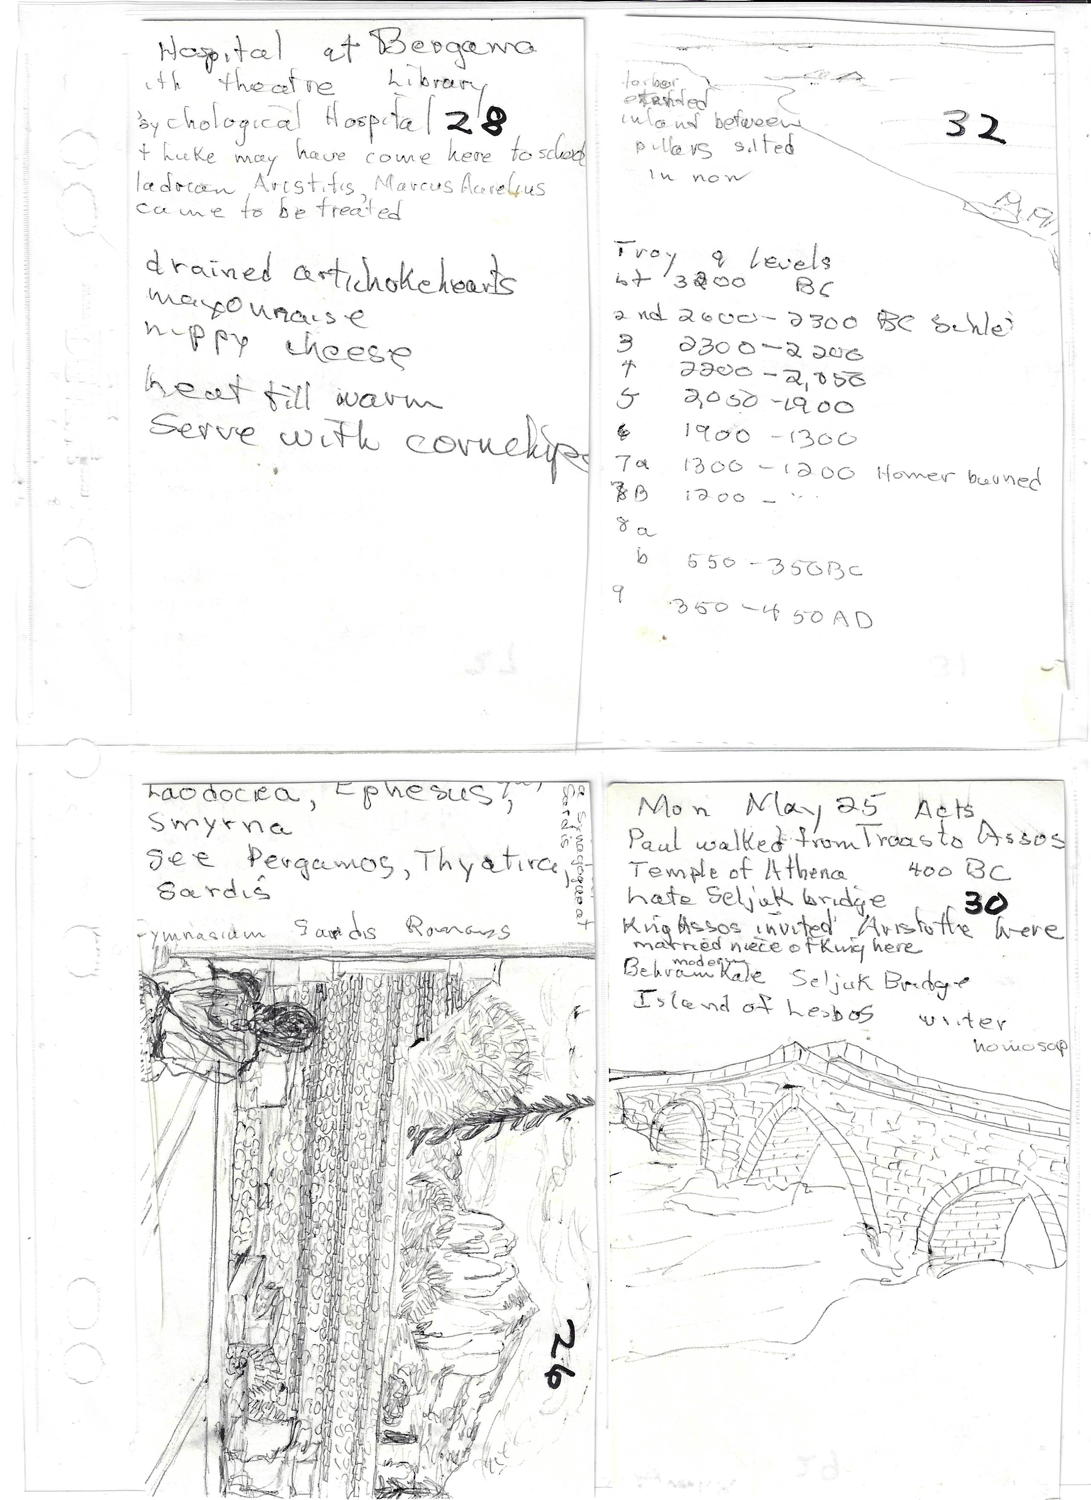 Hospital at Bergama
ith theatre Library
sychological Hospital 28
t Luke may have come here to school
Hadrian, Aristitis, Marcus Aurelius
came to be treated
drained artichokehearts
mayonnaise
nippy cheese
heat till warm
Serve with cornchips
harbor
extended
inland between
pillars silted
in now
32
Troy 9 levels
1st 3200 BC
2nd 2600-2300 BC Schle
3 2300-2200
4 2200-2,050
5 2,050-1900
6 1900-1300
7a 1300-1200 Homer burned
7B 1200-
8a
b 550-350BC
9 350-450AD
Laodocea, Ephesus,
Smyrna
see Pergamos, Thyatira,
Sardis
Synagogue at
Sardis
ymnasium Sardis Romans
26
Mon May 25 Acts
Paul walked from Troas to Assos
Temple of Athena 400 BC
Late Seljuk bridge 30
King Assos invited Aristotle here
married niece of King here
modern
Behram Kale Seljuk Bridge
Island of Lesbos writer
homosap